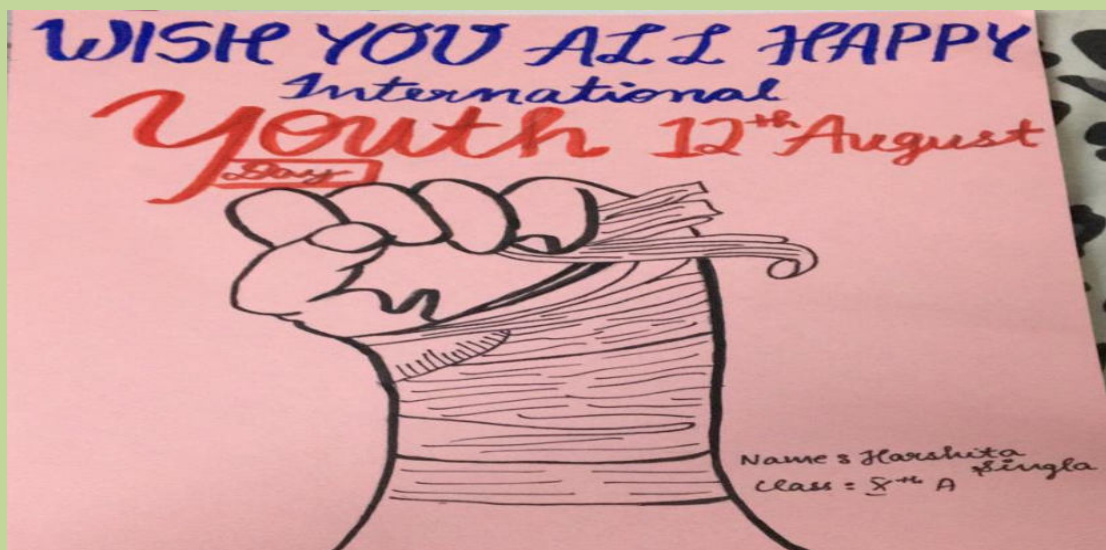 WISH YOU ALL HAPPY
International
Youth 12th August
Day
Name : Harshita
Singla
Class = 8th A